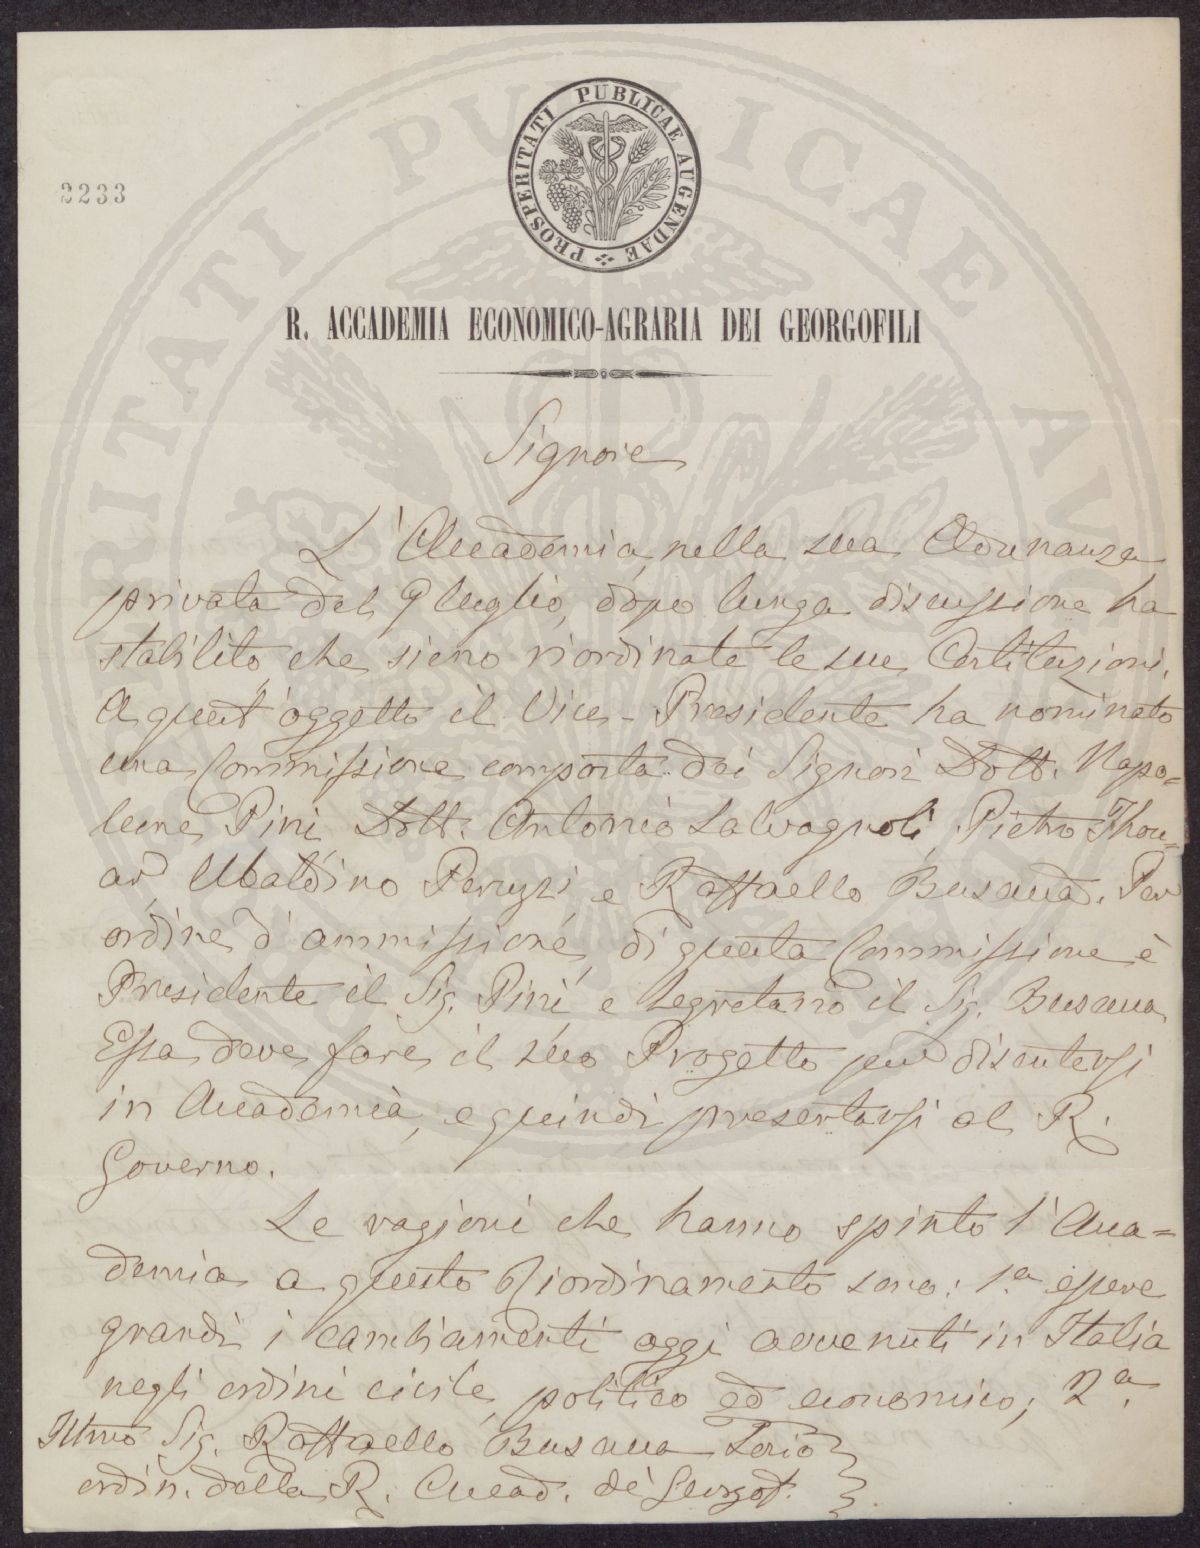 PROSPERITATI PUBLICAE AUGENDAE
2233
R. ACCADEMIA ECONOMICO-AGRARIA DEI GEORGOFILI
Signore
L'Accademia nella sua Adunanza
privata del 9 luglio, dopo lunga discussione ha
stabilito che sieno riordinate le sue Costituzioni.
A quest'oggetto il Vice-Presidente ha nominato
una Commissione composta dei Signori Dott. Napo=
leone Pini, Dott. Antonio Salvagnoli, Pietro Thou=
ar, Ubaldino Peruzzi, e Raffaello Busacca. Per
ordine d'ammissione, di questa Commissione è
Presidente il Sig. Pini e Segretario il Sig. Busacca
Essa deve fare il suo Progetto per discutersi
in Accademia, e quindi presentarsi al R.
Governo.
Le ragioni che hanno spinto l'Acca=
demia a questo Riordinamento sono: 1.a essere
grandi i cambiamenti oggi avvenuti in Italia
negli ordini civile, politico ed economico; 2.a
Illmo Sig. Raffaello Busacca Socio
ordin. della R. Accad. de' Georgof.